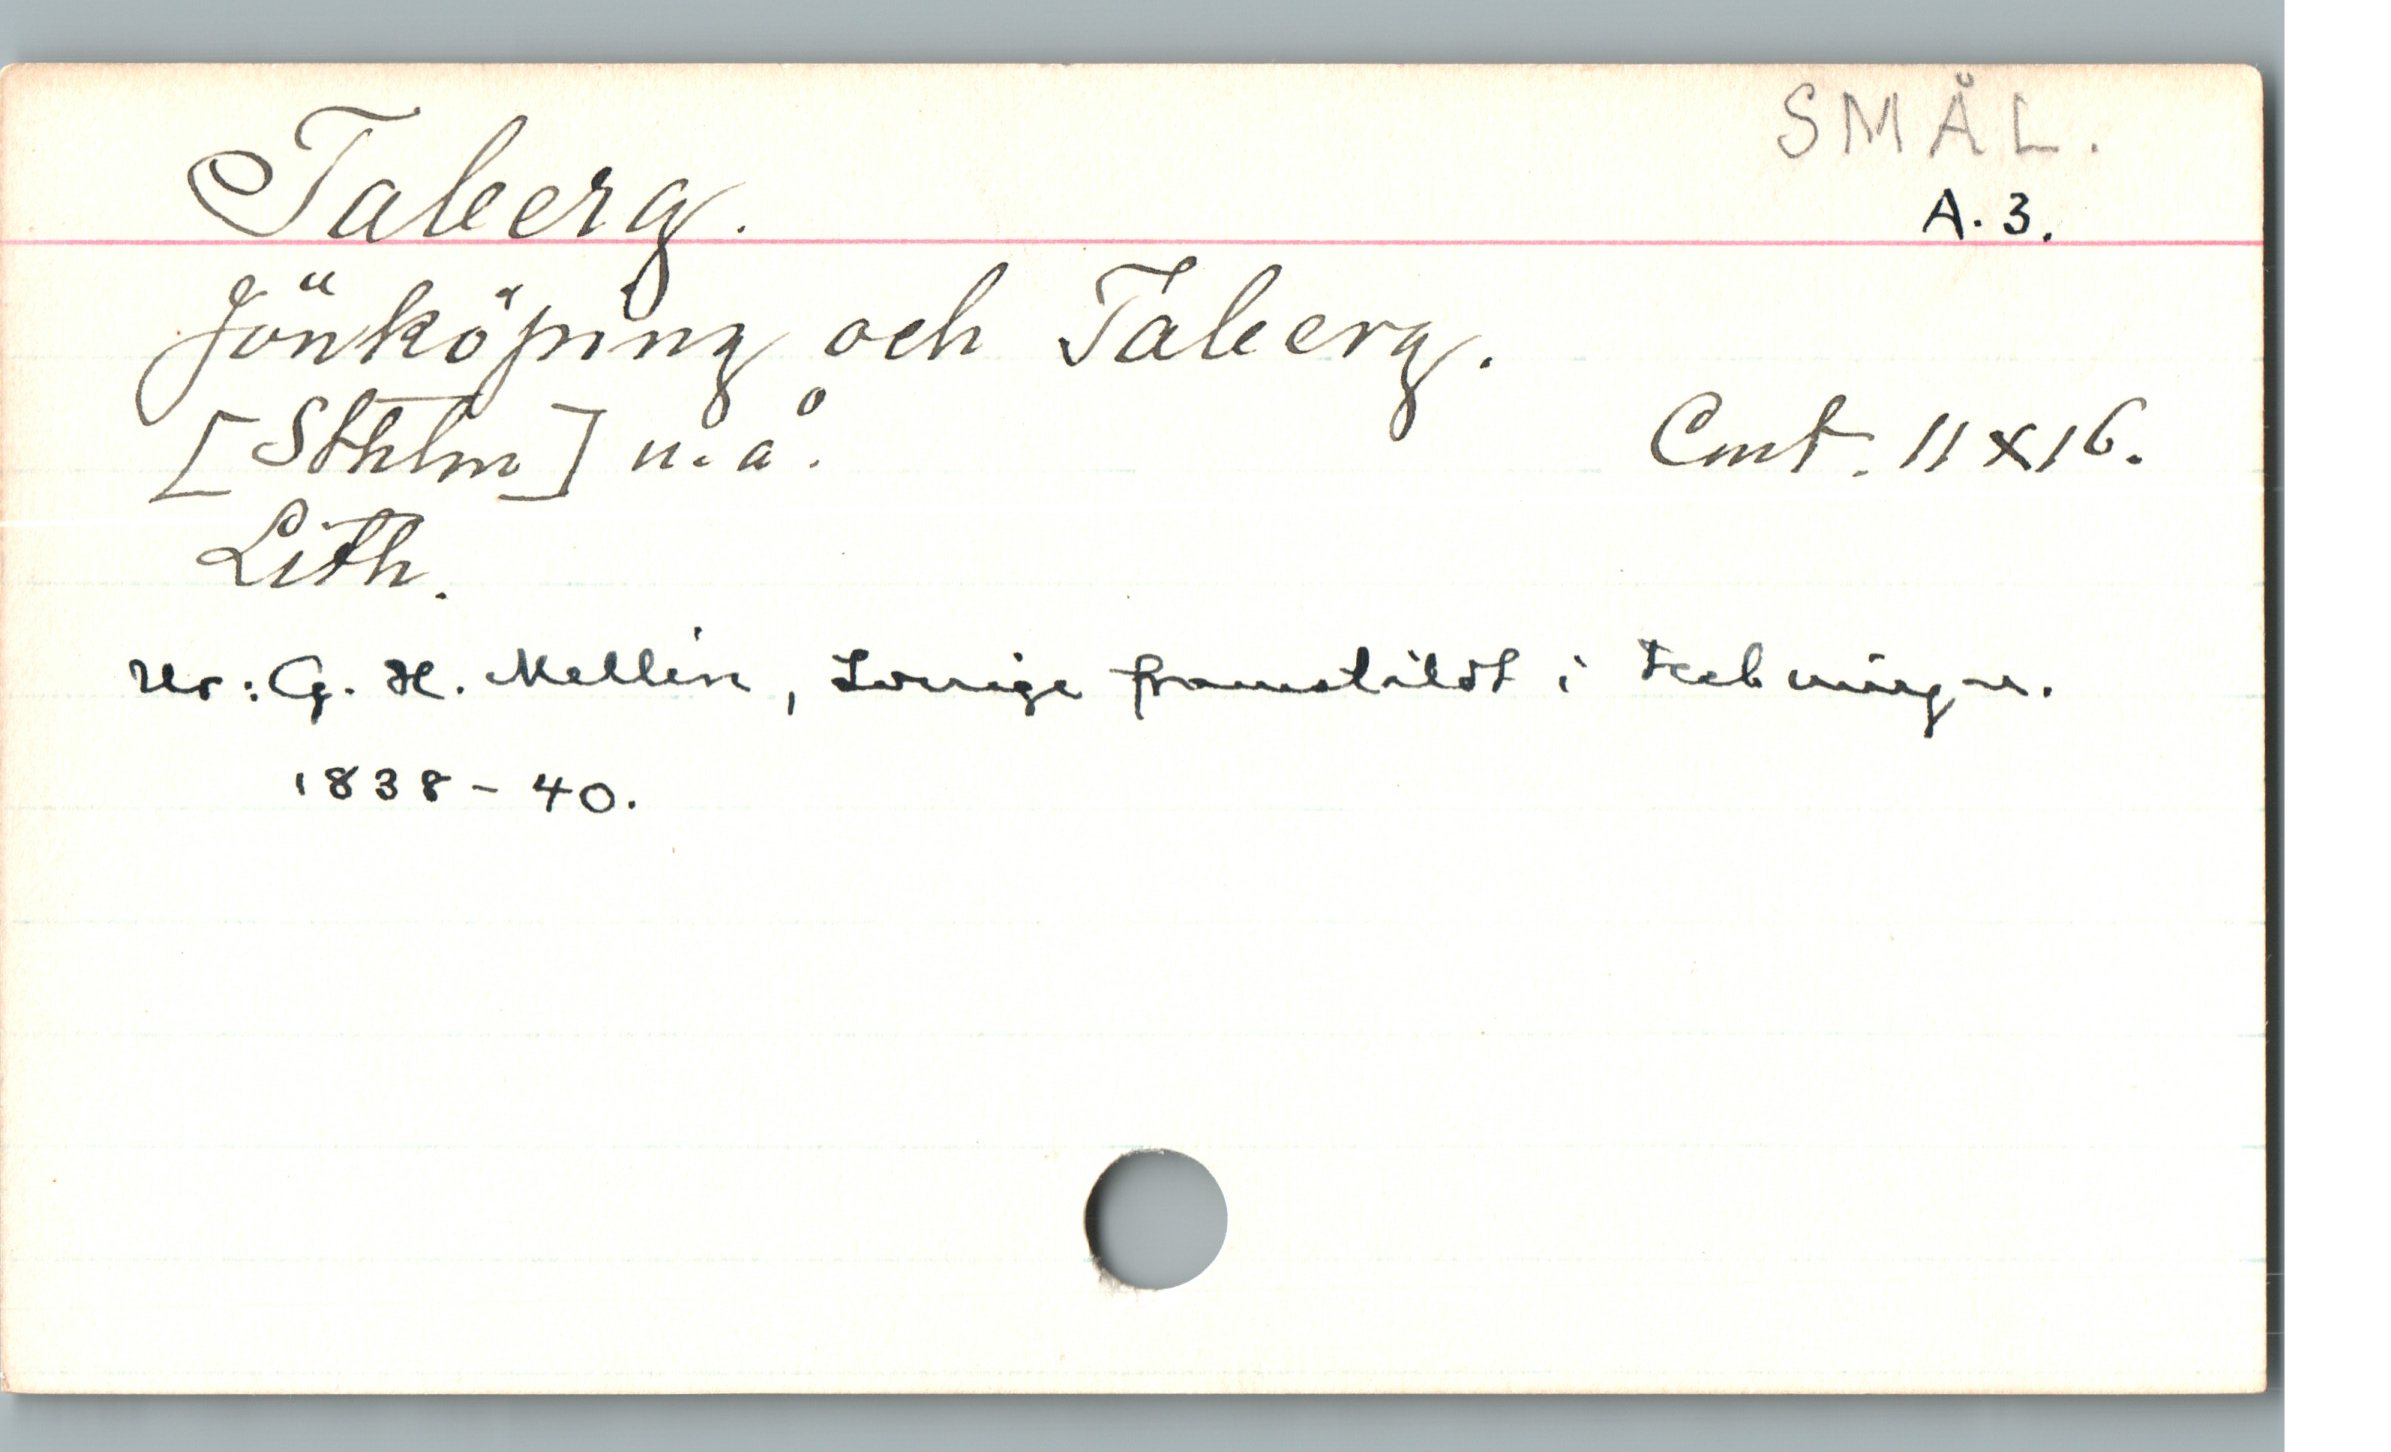 SMÅL.
Taberg.
A. 3.
Jönköping och Taberg.
[Sthlm] u. å. Cmt. 11 x 16.
Lith.
Ur: G. H. Mellin, Sverige framstäldt i teckningar.
1838 - 40.